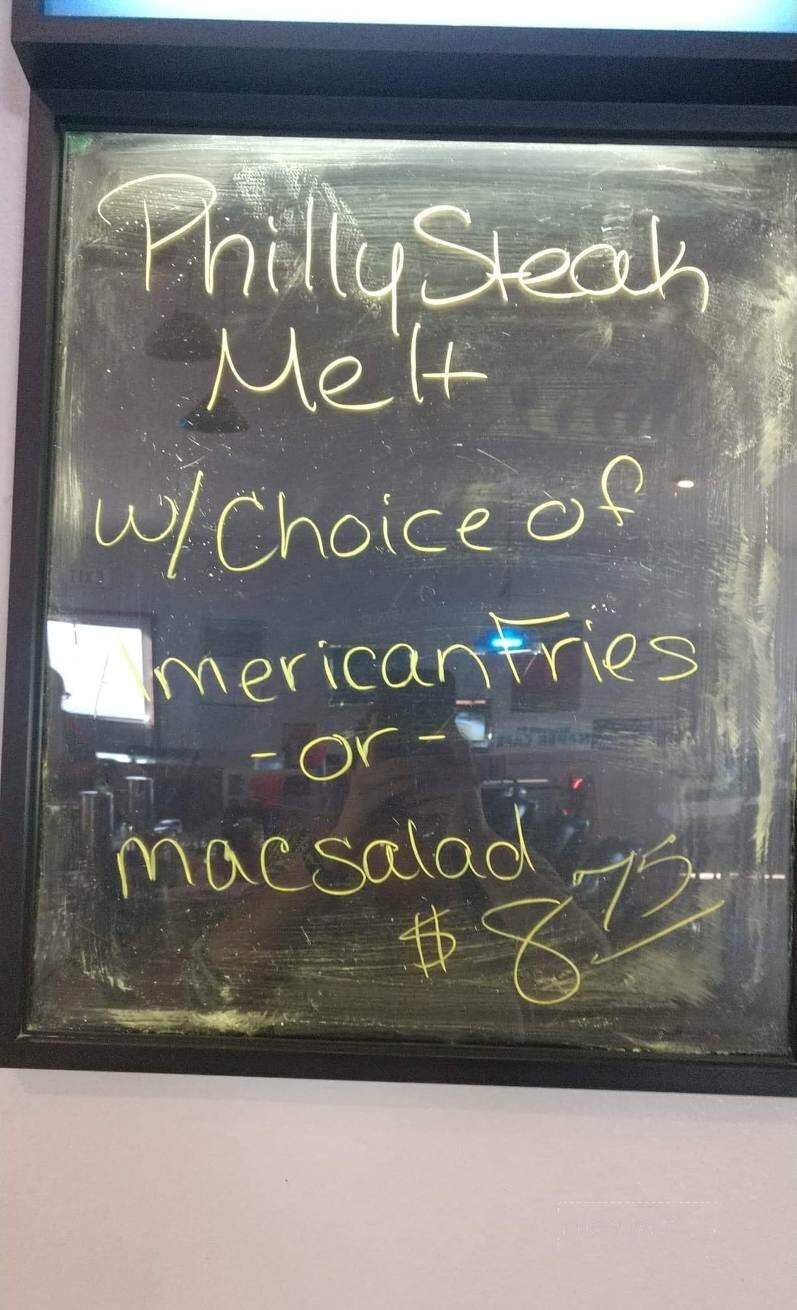 Philly Steak
Melt
w/ Choice of
American Fries
- or -
mac salad
$8.75